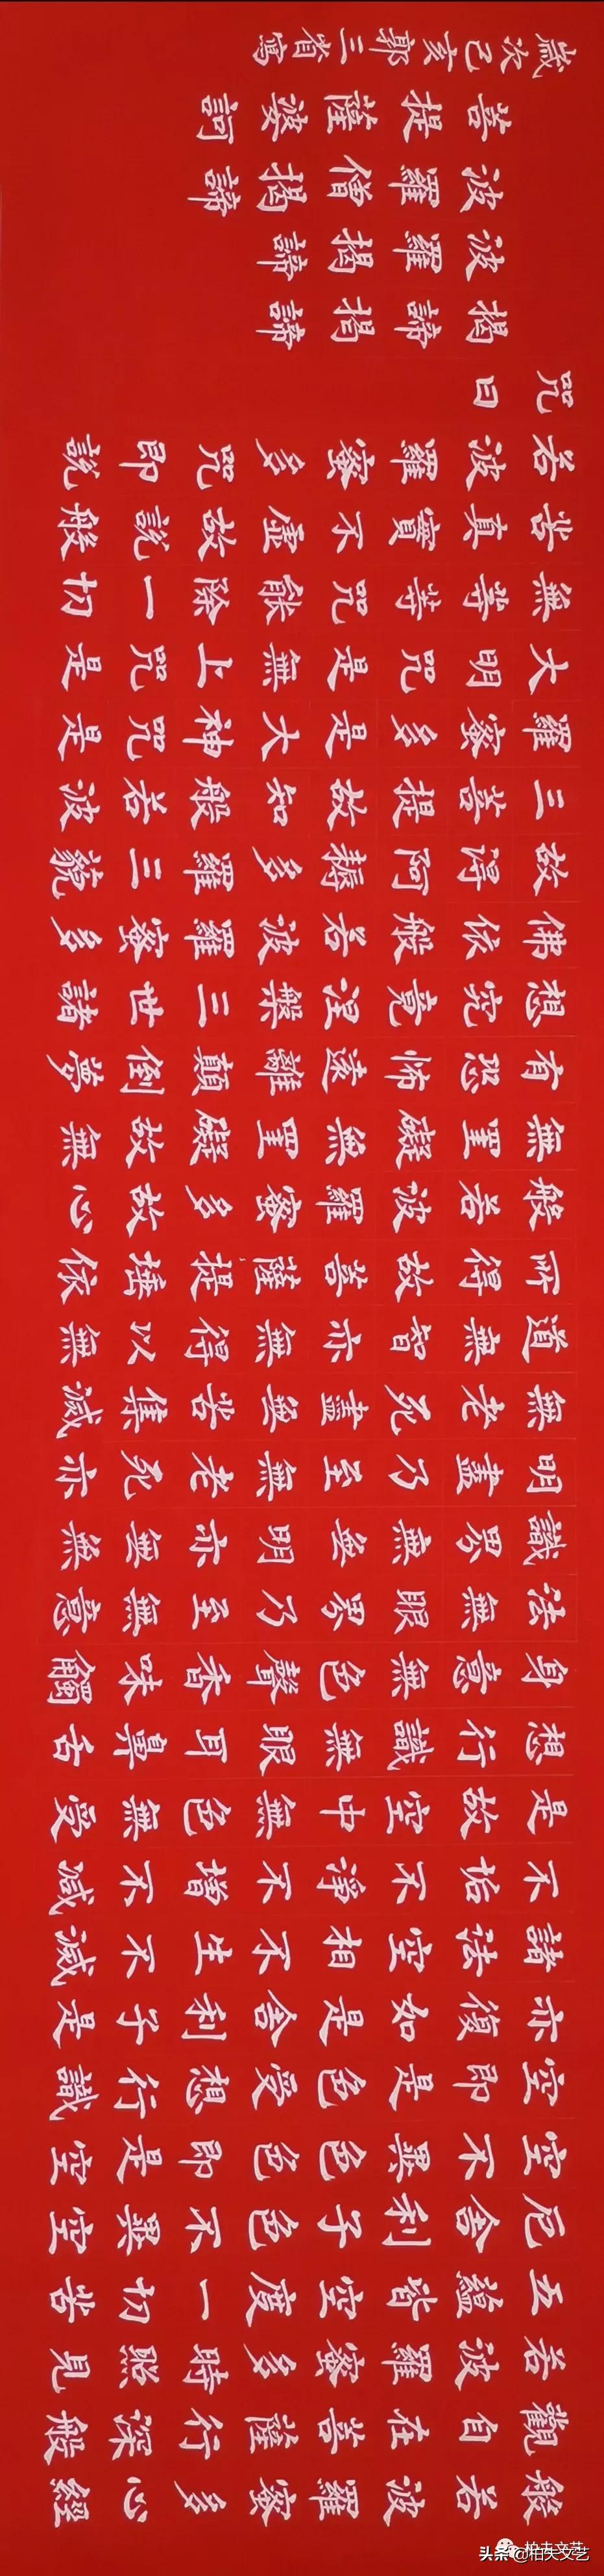 般若波羅蜜多心經
觀自在菩薩行深般
若波羅蜜多時照見
五蘊皆空度一切苦
厄舍利子色不異空
空不異色色即是空
空即是色受想行識
亦復如是舍利子是
諸法空相不生不滅
不垢不淨不增不減
是故空中無色無受
想行識無眼耳鼻舌
身意無色聲香味觸
法無眼界乃至無意
識界無無明亦無無
明盡乃至無老死亦
無老死盡無苦集滅
道無智亦無得以無
所得故菩薩提埵依
般若波羅蜜多故心
無罣礙無罣礙故無
有恐怖遠離顛倒夢
想究竟涅槃三世諸
佛依般若波羅蜜多
故得阿耨多羅三藐
三菩提故知般若波
羅蜜多是大神咒是
大明咒是無上咒是
無等等咒能除一切
苦真實不虛故說般
若波羅蜜多咒即說
咒曰
揭諦揭諦
波羅揭諦
波羅僧揭諦
菩提薩婆訶
歲次己亥郭三省寫
柏夫文艺
头条@柏夫文艺